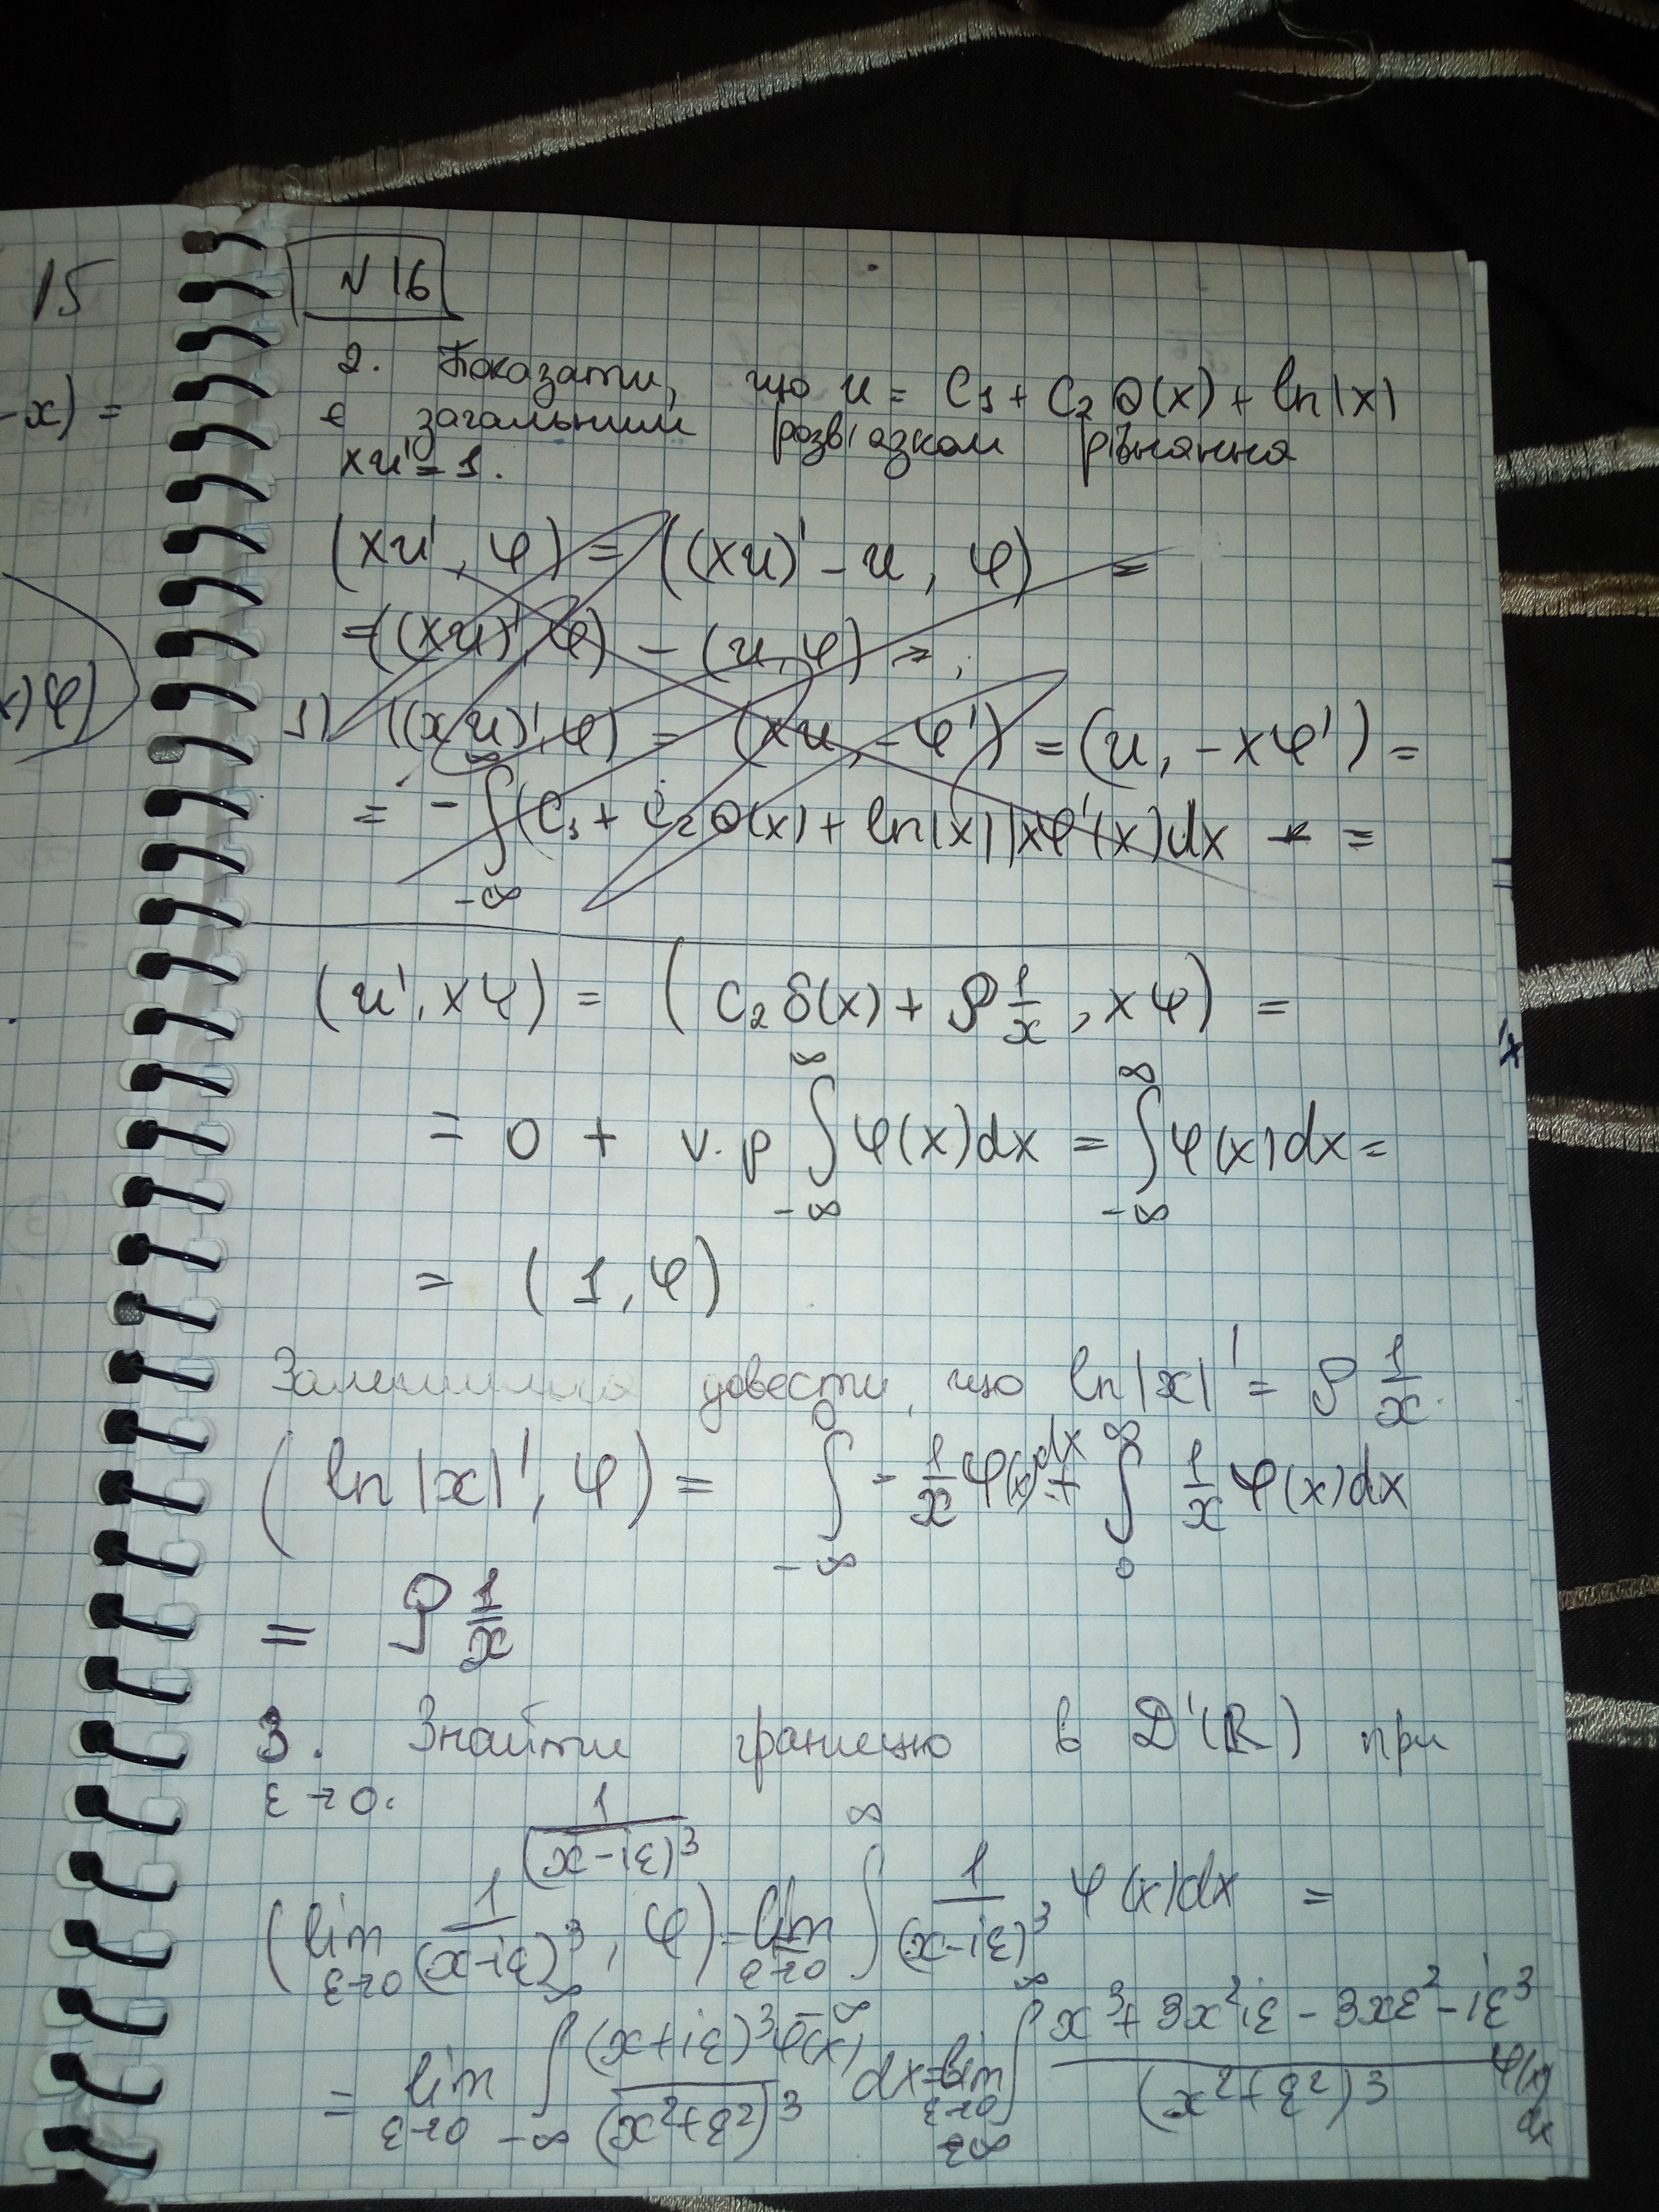 15
-x) =
x)φ)
N 16
2. Показати, що u = C₁ + C₂ θ(x) + ln|x|
є загальним розв'язком рівняння
xu' = 1.
(xu', φ) = ((xu)' - u, φ) =
= ((xu)', φ) - (u, φ) = ;
1) ((xu)', φ) = (xu, -φ') = (u, -xφ') =
= -∫_{-∞}^{∞} (C₁ + C₂ θ(x) + ln|x|) xφ'(x)dx =
(u', xφ) = (C₂ δ(x) + 𝒫 1/x, xφ) =
= 0 + v.p ∫_{-∞}^{∞} φ(x)dx = ∫_{-∞}^{∞} φ(x)dx =
= (1, φ)
Залишилося довести, що ln|x|' = 𝒫 1/x.
(ln|x|', φ) = ∫_{-∞}^{0} -1/x φ(x)dx + ∫_{0}^{∞} 1/x φ(x)dx
= 𝒫 1/x
3. Знайти границю в D'(R) при
ε→0:
1/(x-iε)³
(lim_{ε→0} 1/(x-iε)³, φ) = lim_{ε→0} ∫_{-∞}^{∞} 1/(x-iε)³ φ(x)dx =
= lim_{ε→0} ∫_{-∞}^{∞} (x+iε)³φ(x)/(x²+ε²)³ dx = lim_{ε→0} ∫_{-∞}^{∞} (x³+3x²iε-3xε²-iε³)/(x²+ε²)³ φ(x)dx